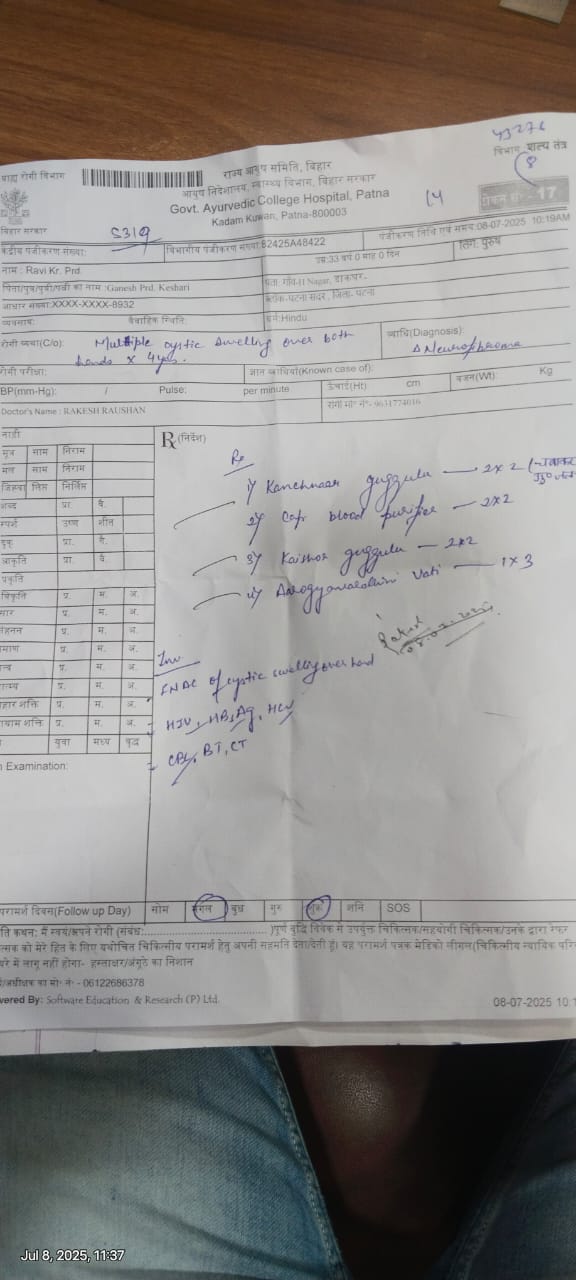 43276
बाह्य रोगी विभाग
राज्य आयुष समिति, बिहार
विभाग: शल्य तंत्र
8
आयुष निदेशालय, स्वास्थ्य विभाग, बिहार सरकार
Govt. Ayurvedic College Hospital, Patna
14
17
Kadam Kuwan, Patna-800003
बिहार सरकार
5319
केंद्रीय पंजीकरण संख्या:
विभागीय पंजीकरण संख्या:82425A48422
पंजीकरण तिथि एवं समय:08-07-2025 10:19AM
नाम : Ravi Kr. Prd.
उम्र:33 वर्ष 0 माह 0 दिन
लिंग: पुरुष
पिता/पुत्र/पुत्री/पत्नी का नाम :Ganesh Prd. Keshari
पता: गाँव-H Nagar, डाकघर-
ब्लॉक-पटना सदर, जिला- पटना
आधार संख्या:XXXX-XXXX-8932
व्यवसाय:
वैवाहिक स्थिति:
धर्म:Hindu
रोगी व्यथा(C/o): Multiple cystic swelling over both
hands x 4 yrs.
व्याधि(Diagnosis):
रोगी परीक्षा:
ज्ञात व्याधियाँ(Known case of):
BP(mm-Hg): /
Pulse:
per minute
ऊंचाई(Ht)
cm
वजन(Wt):
Kg
Doctor's Name : RAKESH RAUSHAN
रोगी मो० नं०- 9631774016
नाड़ी
Rx (निर्देश)
मूत्र साम निराम
मल साम निराम
जिह्वा लिप्त निर्लिप्त
शब्द प्रा. वै.
स्पर्श उष्ण शीत
दृक् प्रा. वै.
आकृति प्रा. वै.
प्रकृति
विकृति प्र. म. अ.
सार प्र. म. अ.
संहनन प्र. म. अ.
प्रमाण प्र. म. अ.
सत्व प्र. म. अ.
सात्म्य प्र. म. अ.
आहार शक्ति प्र. म. अ.
व्यायाम शक्ति प्र. म. अ.
युवा मध्य वृद्ध
Examination:
Rx
1) Kanchnaar guggulu — 2x2
2) Cap blood purifier — 2x2
3) Kaishor guggulu — 2x2
4) Aarogyavardhini Vati — 1x3
Inv
FNAC of cystic swelling over hand
HIV, HBsAg, HCV
CBC, BT, CT
परामर्श दिवस(Follow up Day) सोम मंगल बुध गुरु शुक्र शनि SOS
मति कथन: मैं स्वयं/अपने रोगी (संबंध:..............................)पूर्ण बुद्धि विवेक से उपर्युक्त चिकित्सक/सहयोगी चिकित्सक/उनके द्वारा रेफर
त्सक को मेरे हित के लिए यथोचित चिकित्सीय परामर्श हेतु अपनी सहमति देता/देती हूँ। यह परामर्श पत्रक मेडिको लीगल(चिकित्सीय न्यायिक परि
रे में लागू नहीं होगा- हस्ताक्षर/अंगूठे का निशान
/अधीक्षक का मो० नं० - 06122686378
vered By: Software Education & Research (P) Ltd.
08-07-2025 10:1
Jul 8, 2025, 11:37